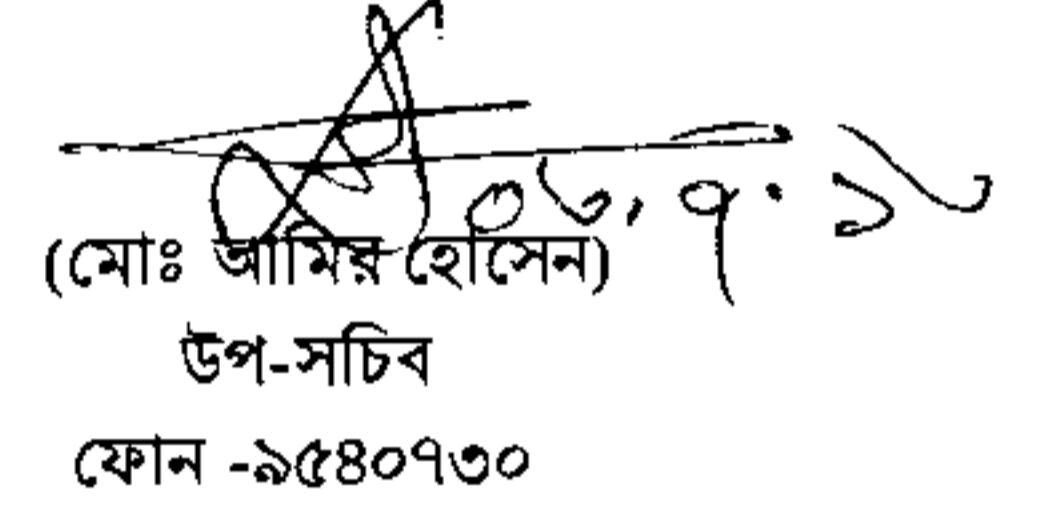 ০৮.৭.১৮
(মোঃ আমির হোসেন)
উপ-সচিব
ফোন -৯৫৪০৭৩০